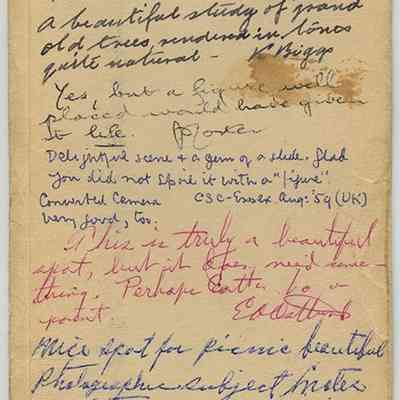 A beautiful study of grand
old trees, rendered in tones
quite natural - K Biggs
Yes, but a figure well
placed would have given
it life. Porter
Delightful scene & a gem of a slide. Glad
you did not spoil it with a "figure".
Converted Camera CSC-Essex Aug: '59 (UK)
very good, too.
This is truly a beautiful
spot, but it does need some-
thing. Perhaps Cattle
point.
nice spot for picnic beautiful
Photographic subject